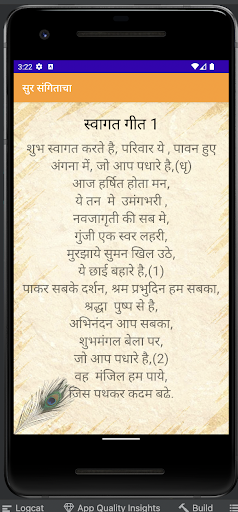 3:22
सुर संगिताचा
स्वागत गीत 1
शुभ स्वागत करते है, परिवार ये , पावन हुए
अंगना में, जो आप पधारे है,(धृ)
आज हर्षित होता मन,
ये तन मे उमंगभरी ,
नवजागृती की सब मे,
गुंजी एक स्वर लहरी,
मुरझाये सुमन खिल उठे,
ये छाई बहारे है,(1)
पाकर सबके दर्शन, श्रम प्रभुदिन हम सबका,
श्रद्धा पुष्प से है,
अभिनंदन आप सबका,
शुभमंगल बेला पर,
जो आप पधारे है,(2)
वह मंजिल हम पाये,
जिस पथकर कदम बढे.
Logcat App Quality Insights Build